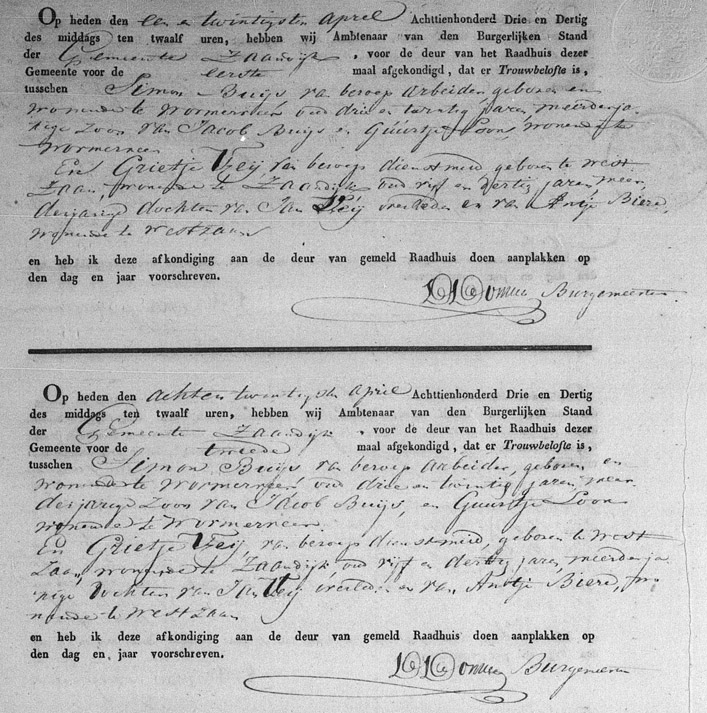 Op heden den een en twintigsten april Achttienhonderd Drie en Dertig
des middags ten twaalf uren, hebben wij Ambtenaar van den Burgerlijken Stand
der Gemeente Zaandijk, voor de deur van het Raadhuis dezer
Gemeente voor de eerste maal afgekondigd, dat er Trouwbelofte is,
tusschen Simon Buijs van beroep arbeider geboren en
wonende te Wormerneer oud drie en twintig jaren, meerderja-
rige Zoon van Jacob Buijs en Guurtje Loon, wonende te
Wormerneer
En Grietje Veij, van beroep dienstmeid, geboren te West
Zaan, wonende te Zaandijk oud vijf en dertig jaren, meer
derjarige dochter van Jan Veij overleden en van Antje Biere,
wonende te Westzaan
en heb ik deze afkondiging aan de deur van gemeld Raadhuis doen aanplakken op
den dag en jaar voorschreven.
Burgemeester
Op heden den achten twintigsten april Achttienhonderd Drie en Dertig
des middags ten twaalf uren, hebben wij Ambtenaar van den Burgerlijken Stand
der Gemeente Zaandijk, voor de deur van het Raadhuis dezer
Gemeente voor de tweede maal afgekondigd, dat er Trouwbelofte is,
tusschen Simon Buijs van beroep arbeider, geboren en
wonende te Wormerneer oud drie en twintig jaren, meer
derjarige Zoon van Jacob Buijs, en Guurtje Loon
wonende te Wormerneer.
En Grietje Veij, van beroep dienstmeid, geboren te West
Zaan, wonende te Zaandijk oud vijf en dertig jaren, meerderja
rige Dochter van Jan Veij overleden en van Antje Biere, wo
nende te Westzaan
en heb ik deze afkondiging aan de deur van gemeld Raadhuis doen aanplakken op
den dag en jaar voorschreven.
Burgemeester